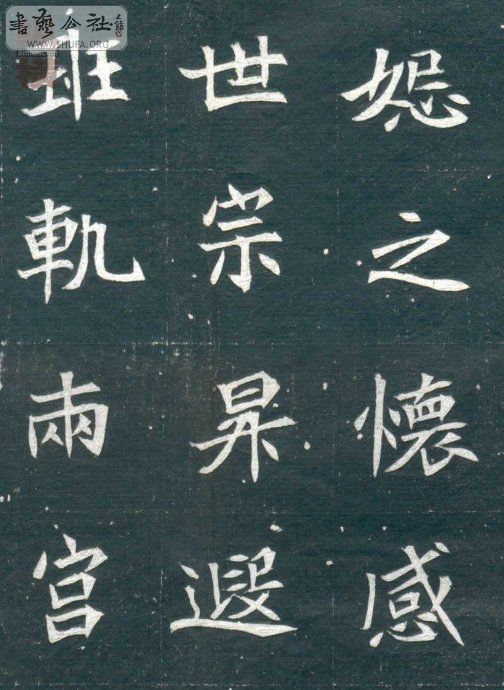 書藝公社
WWW.SHUFA.ORG
恕之懷感
世宗昇遐
軌兩宫